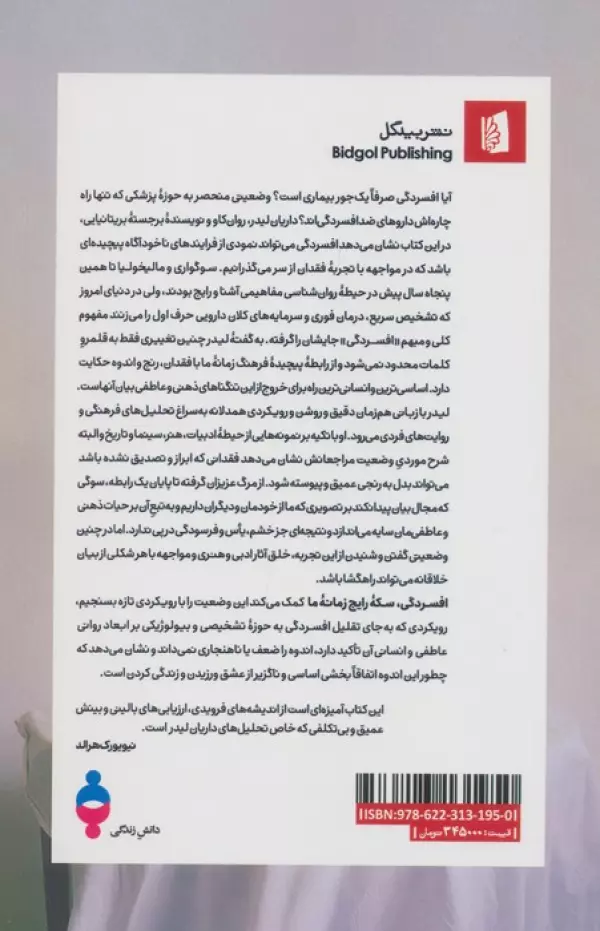 نشر بیدگل
Bidgol Publishing
آیا افسردگی صرفاً یک جور بیماری است؟ وضعیتی منحصر به حوزهٔ پزشکی که تنها راه
چاره‌اش داروهای ضدافسردگی‌اند؟ داریان لیدر، روان‌کاو و نویسندهٔ برجستهٔ بریتانیایی،
در این کتاب نشان می‌دهد افسردگی می‌تواند نمودی از فرایندهای ناخودآگاه پیچیده‌ای
باشد که در مواجهه با تجربهٔ فقدان از سر می‌گذرانیم. سوگواری و مالیخولیا تا همین
پنجاه سال پیش در حیطهٔ روان‌شناسی مفاهیمی آشنا و رایج بودند، ولی در دنیای امروز
که تشخیص سریع، درمان فوری و سرمایه‌های کلان دارویی حرف اول را می‌زنند مفهوم
کلی و مبهم «افسردگی» جایشان را گرفته. به گفتهٔ لیدر چنین تغییری فقط به قلمرو
کلمات محدود نمی‌شود و از رابطهٔ پیچیدهٔ فرهنگ زمانهٔ ما با فقدان، رنج و اندوه حکایت
دارد. اساسی‌ترین و انسانی‌ترین راه برای خروج از این تنگناهای ذهنی و عاطفی بیان آنهاست.
لیدر با زبانی هم‌زمان دقیق و روشن و رویکردی همدلانه به سراغ تحلیل‌های فرهنگی و
روایت‌های فردی می‌رود. او با تکیه بر نمونه‌هایی از حیطهٔ ادبیات، هنر، سینما و تاریخ و البته
شرح موردیِ وضعیت مراجعانش نشان می‌دهد فقدانی که ابراز و تصدیق نشده باشد
می‌تواند بدل به رنجی عمیق و پیوسته شود. از مرگ عزیزان گرفته تا پایان یک رابطه، سوگی
که مجال بیان پیدا نکند بر تصویری که ما از خودمان و دیگران داریم و به تبع آن بر حیات ذهنی
و عاطفی‌مان سایه می‌اندازد و نتیجه‌ای جز خشم، یأس و فرسودگی در پی ندارد. اما در چنین
وضعیتی گفتن و شنیدن از این تجربه، خلق آثار ادبی و هنری و مواجهه با هر شکلی از بیان
خلاقانه می‌تواند راهگشا باشد.
افسردگی، سکهٔ رایج زمانهٔ ما کمک می‌کند این وضعیت را با رویکردی تازه بسنجیم،
رویکردی که به‌جای تقلیل افسردگی به حوزهٔ تشخیصی و بیولوژیکی بر ابعاد روانی
عاطفی و انسانی آن تأکید دارد، اندوه را ضعف یا ناهنجاری نمی‌داند و نشان می‌دهد که
چطور این اندوه اتفاقاً بخشی اساسی و ناگزیر از عشق ورزیدن و زندگی کردن است.
این کتاب آمیزه‌ای است از اندیشه‌های فرویدی، ارزیابی‌های بالینی و بینش
عمیق و بی‌تکلفی که خاص تحلیل‌های داریان لیدر است.
نیویورک هرالد
ISBN: 978-622-313-195-0
قیمت: ۳۴۵۰۰۰ تومان
دانش زندگی